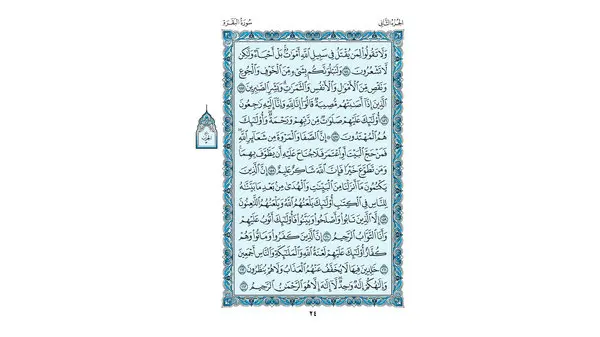 الجزء الثاني
سورة البقرة
ولا تقولوا لمن يقتل في سبيل الله أموات بل أحياء ولكن
لا تشعرون ولنبلونكم بشيء من الخوف والجوع
ونقص من الأموال والأنفس والثمرات وبشر الصابرين
الذين إذا أصابتهم مصيبة قالوا إنا لله وإنا إليه راجعون
أولئك عليهم صلوات من ربهم ورحمة وأولئك
هم المهتدون إن الصفا والمروة من شعائر الله
فمن حج البيت أو اعتمر فلا جناح عليه أن يطوف بهما
ومن تطوع خيرا فإن الله شاكر عليم إن الذين
يكتمون ما أنزلنا من البينات والهدى من بعد ما بيناه
للناس في الكتاب أولئك يلعنهم الله ويلعنهم اللاعنون
إلا الذين تابوا وأصلحوا وبينوا فأولئك أتوب عليهم
وأنا التواب الرحيم إن الذين كفروا وماتوا وهم
كفار أولئك عليهم لعنة الله والملائكة والناس أجمعين
خالدين فيها لا يخفف عنهم العذاب ولا هم ينظرون
وإلهكم إله واحد لا إله إلا هو الرحمن الرحيم
٢٤